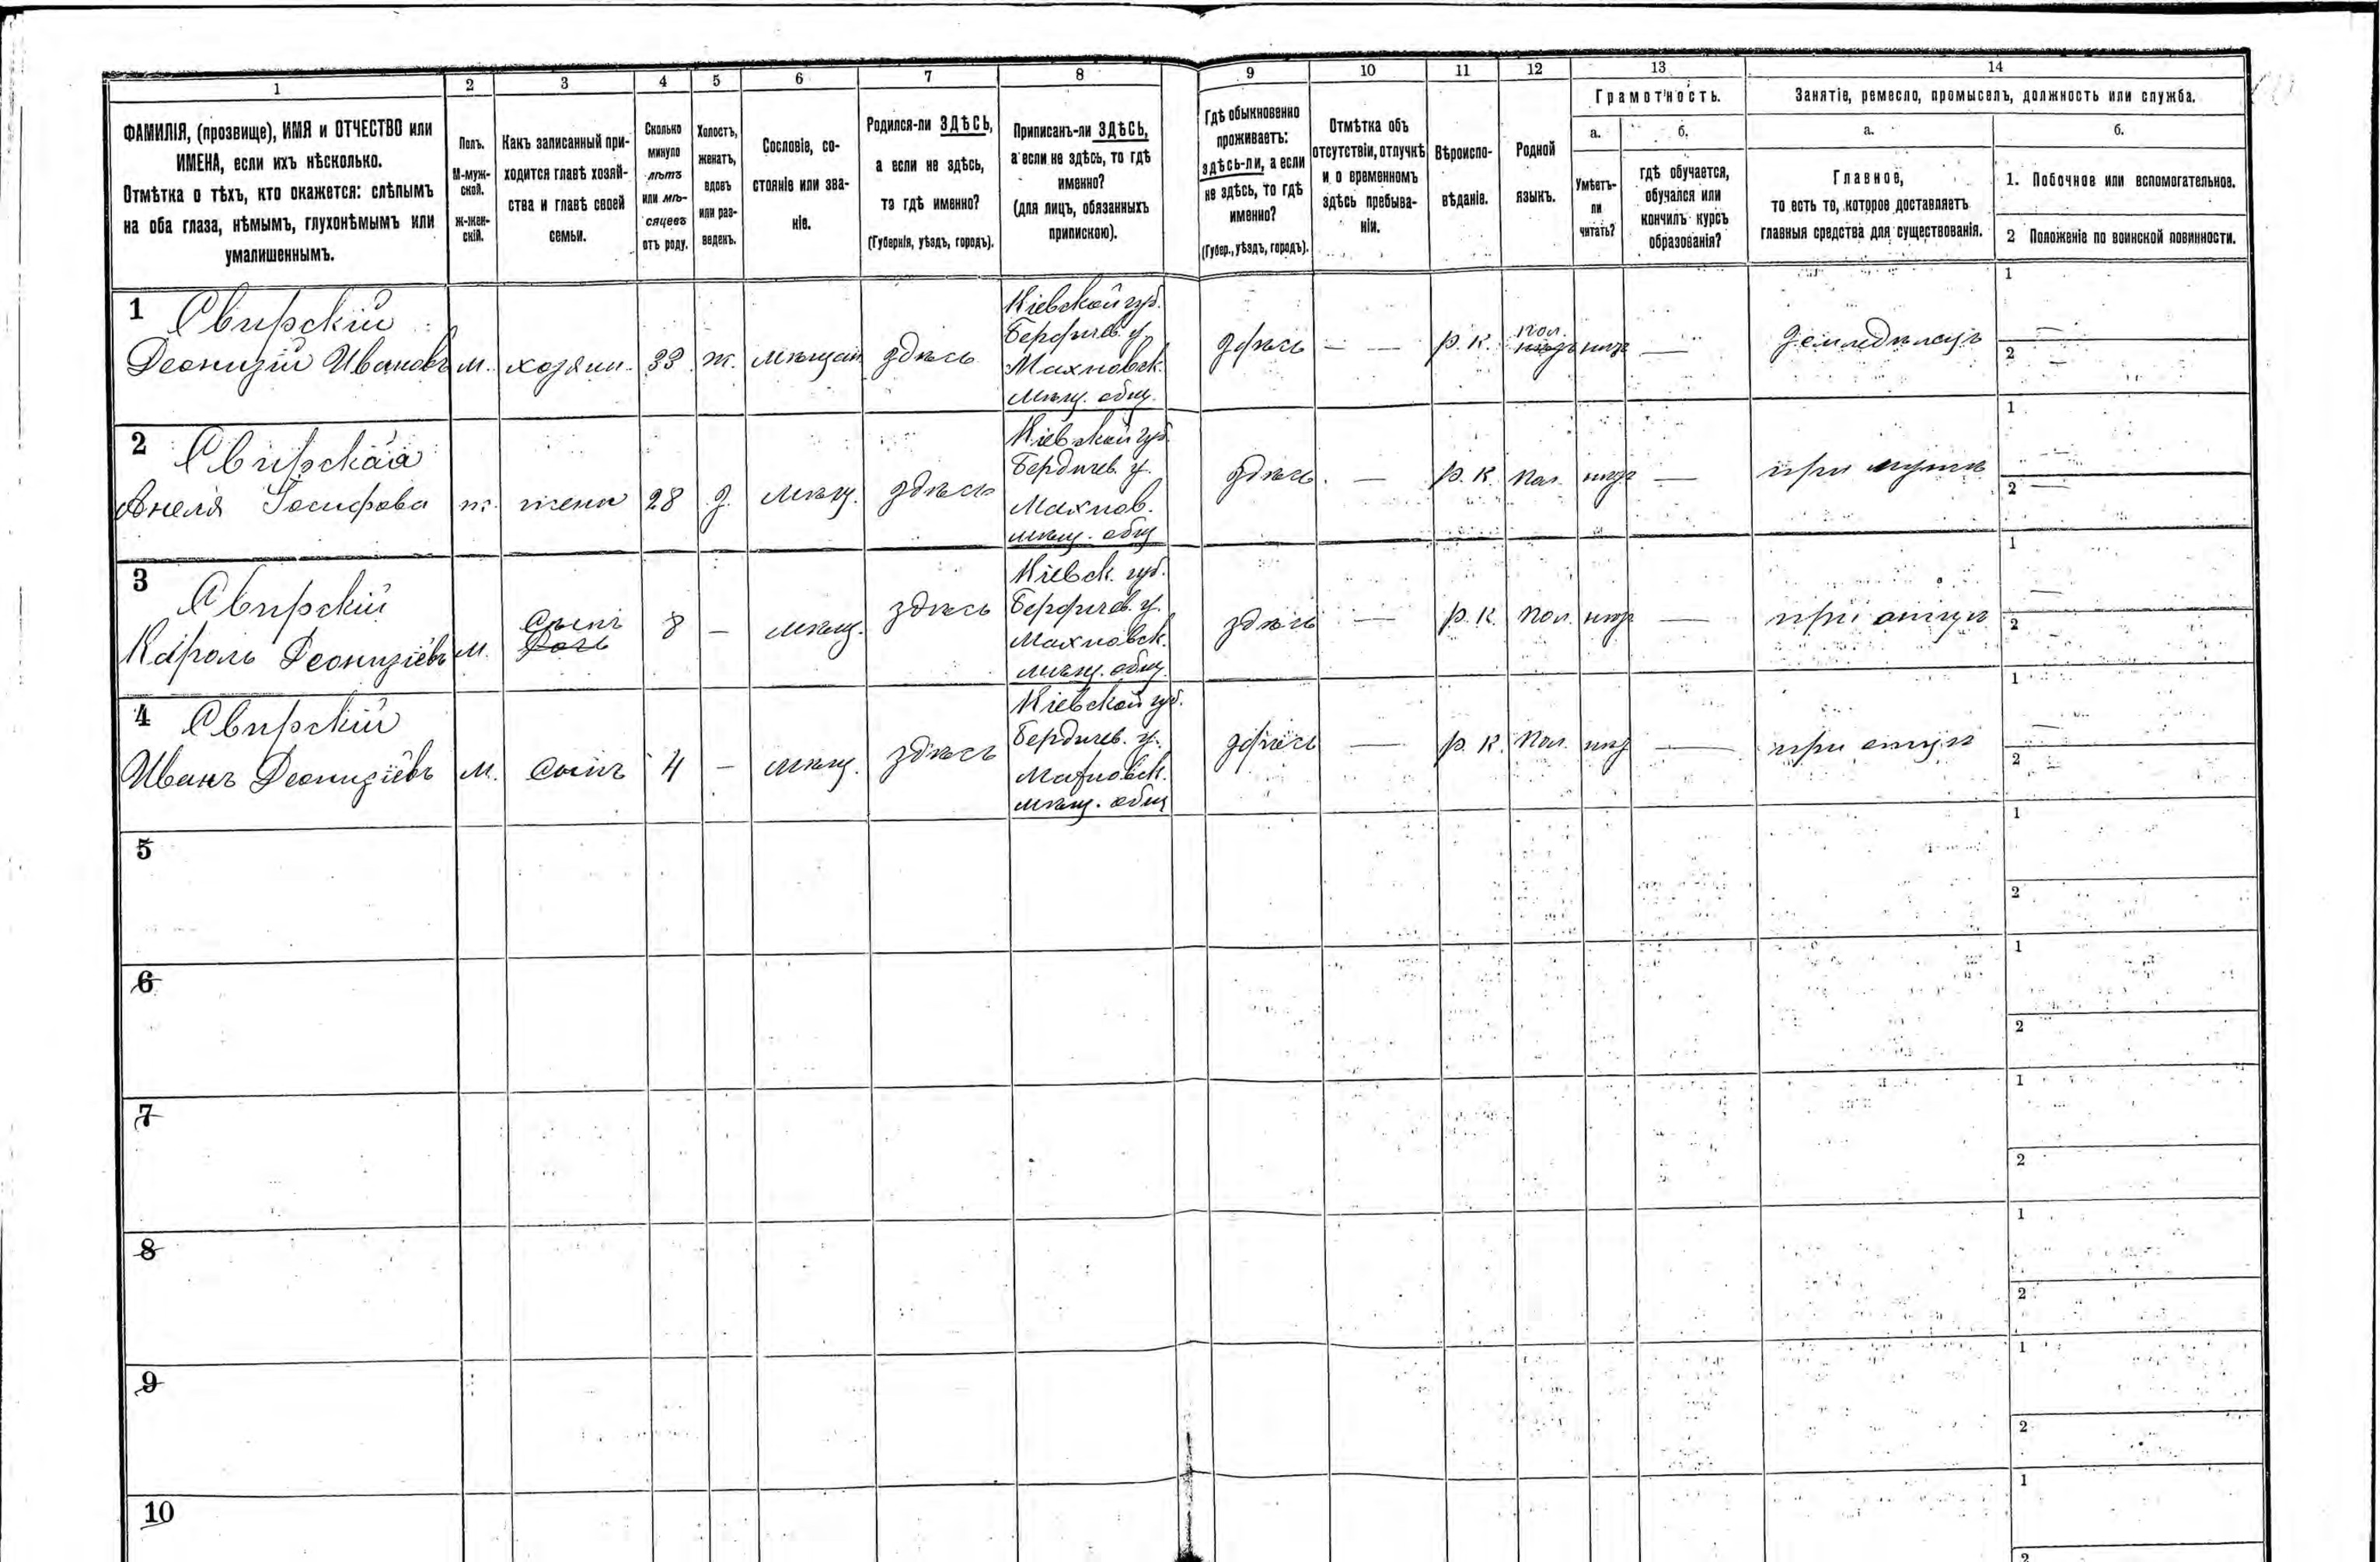 1 2 3 4 5 6 7 8 9 10 11 12 13 14
ФАМИЛІЯ, (прозвище), ИМЯ и ОТЧЕСТВО или
ИМЕНА, если ихъ нѣсколько.
Отмѣтка о тѣхъ, кто окажется: слѣпымъ
на оба глаза, нѣмымъ, глухонѣмымъ или
умалишеннымъ.
Полъ.
М-муж-
ской.
Ж-жен-
скій.
Какъ записанный при-
ходится главѣ хозяй-
ства и главѣ своей
семьи.
Сколько
минуло
лѣтъ
или мѣ-
сяцевъ
отъ роду.
Холостъ,
женатъ,
вдовъ
или раз-
веденъ.
Сословіе, со-
стояніе или зва-
ніе.
Родился-ли ЗДѢСЬ,
а если не здѣсь,
то гдѣ именно?
(Губернія, уѣздъ, городъ).
Приписанъ-ли ЗДѢСЬ,
а если не здѣсь, то гдѣ
именно?
(для лицъ, обязанныхъ
припискою).
Гдѣ обыкновенно
проживаетъ:
здѣсь-ли, а если
не здѣсь, то гдѣ
именно?
(Губер., уѣздъ, городъ).
Отмѣтка объ
отсутствіи, отлучкѣ
и о временномъ
здѣсь пребыва-
ніи.
Вѣроиспо-
вѣданіе.
Родной
языкъ.
Грамотность.
а.
Умѣетъ-
ли
читать?
б.
гдѣ обучается,
обучался или
кончилъ курсъ
образованія?
Занятіе, ремесло, промыселъ, должность или служба.
а.
Главное,
то есть то, которое доставляетъ
главныя средства для существованія.
б.
1. Побочное или вспомогательное.
2 Положеніе по воинской повинности.
1 Свирскій
Деонизій Ивановъ
м.
хозяин.
33
ж.
мѣщан
здѣсь
Кіевской губ.
Бердичев. у.
Махновск.
мѣщ. общ.
здѣсь
— —
р. к.
пол.
нѣтъ
—
земледѣлецъ
1 —
2 —
2 Свирская
Анеля Іосифова
ж.
жена
28
з.
мѣщ.
здѣсь
Кіевской губ
Бердичев. у.
Махнов.
мѣщ. общ
здѣсь
—
р. к.
пол.
нѣтъ
—
при мужѣ
1 —
2 —
3 Свирскій
Кароль Деонизіевъ
м.
сынъ
дочь
8
—
мѣщ.
здѣсь
Кіевск. губ.
Бердичев. у.
Махновск.
мѣщ. общ.
здѣсь
—
р. к.
пол.
нѣтъ
—
при отцѣ
1 —
2 —
4 Свирскій
Иванъ Деонизіевъ
м.
сынъ
4
—
мѣщ.
здѣсь
Кіевской губ.
Бердичев. у.
Махновск.
мѣщ. общ
здѣсь
—
р. к.
пол.
нѣт
—
при отцѣ
1 —
2 —
5
1
2
6
1
2
7
1
2
8
1
2
9
1
2
10
1
2